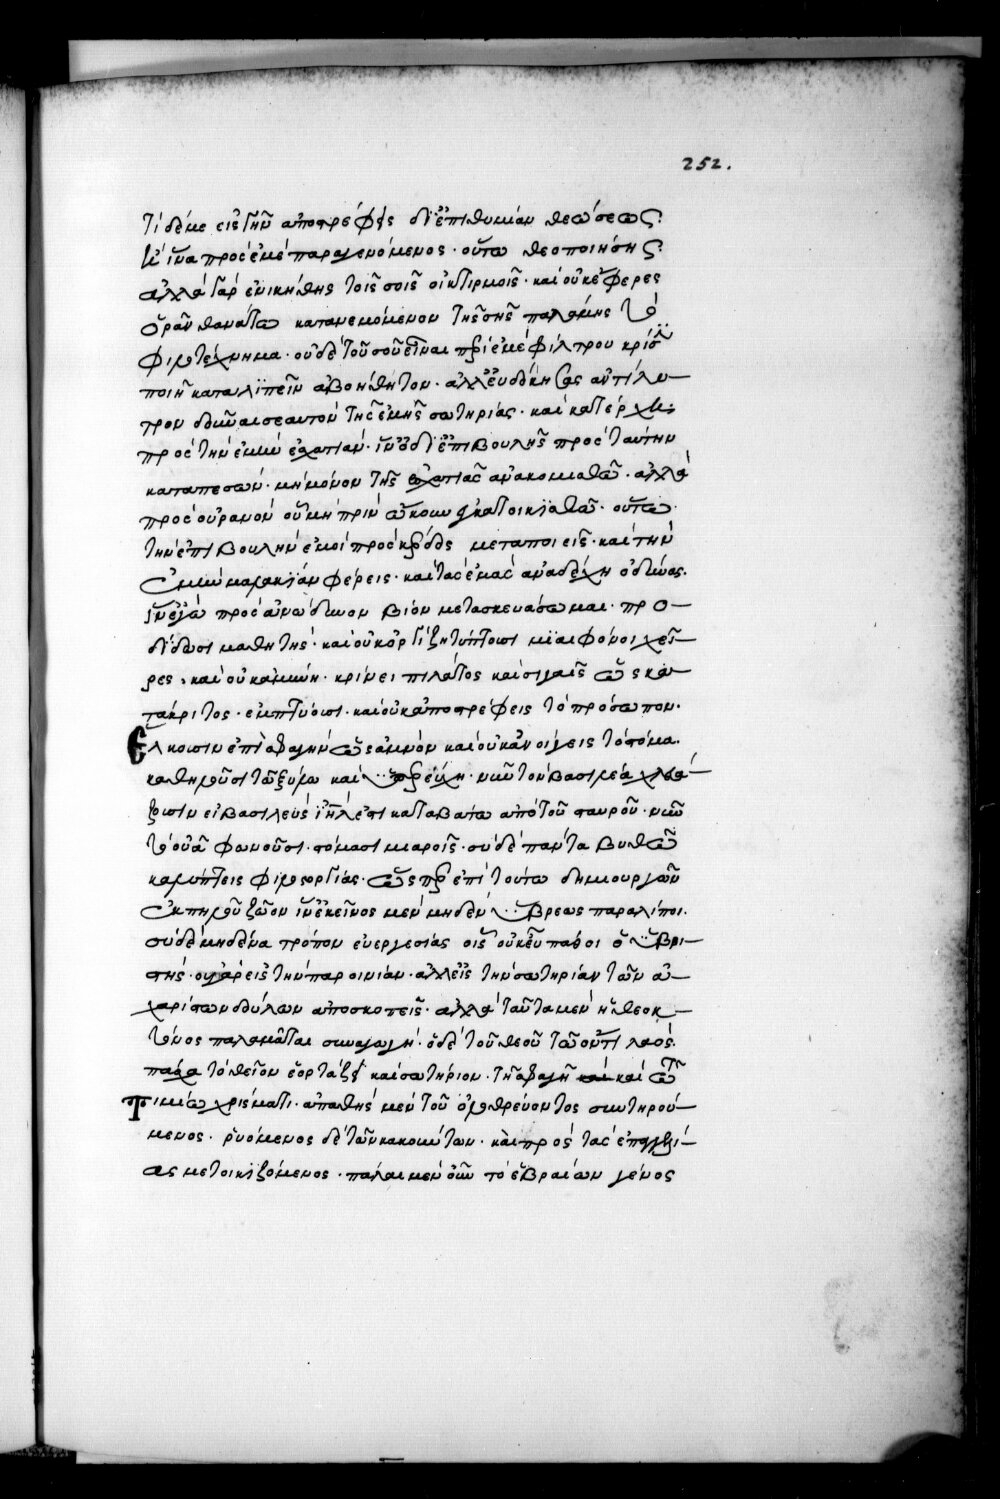 252.
τί δέ με εἰς γῆν ἀποστρέφεις δι' ἐπιθυμίαν θεώσεως
ἵνα πρὸς ἐμὲ παραγενόμενος· οὕτω θεοποιήσης
ἀλλὰ γὰρ ἐνικήθης τοῖς σοῖς οἰκτιρμοῖς· καὶ οὐκ ἔφερες
ὁρᾶν θανάτω κατανεμόμενον τῆς σῆς παλάμης τὸ
φιλοτέχνημα· οὐδὲ τοῦ σοῦ εἶναι περὶ ἐμὲ φίλτρου
καταλϊπεῖν ἀβοήθητον· ἀλλ' εὐδόκησας ἀντίλυ-
τρον δοῦναι σεαυτὸν τῆς ἐμῆς σωτηρίας· καὶ κατέρχη
πρὸς τὴν ἐμὴν ἐσχατιάν· ἵν' ὁ δι' ἐπιβουλῆς πρὸς ταύτην
καταπεσών· μὴ μόνον τῆς ἐσχατιᾶς ἀνακομισθῶ· ἀλλὰ
πρὸς οὐρανὸν οὗ μὴ πρὶν ὤκουν κατοικισθῶ· οὕτω
τὴν ἐπιβουλὴν ἐμοὶ πρὸς κέρδος μεταποιεῖς· καὶ τὴν
ἐμὴν μαλακίαν φέρεις· καὶ τὰς ἐμὰς ἀναδέχη ὀδύνας.
ἵν' ἐγὼ πρὸς ἀνώδυνον βίον μετασκευάσωμαι· προ-
δίδωσι μαθητής· καὶ οὐκ ὀργίζη τύπτουσι μιαιφόνοι χεῖ-
ρες, καὶ οὐ κάμνη· κρίνει πιλάτος καὶ σιγᾶς ὡς κα-
τάκριτος· ἐμπτύουσι· καὶ οὐκ ἀποστρέφεις τὸ πρόσωπον.
ἕλκουσιν ἐπὶ σφαγὴν ὡς ἀμνὸν καὶ οὐκ ἀνοίγεις τὸ στόμα.
καθηλοῦσι τῶ ξύλω καὶ ὑπερεύχη· νῦν τὸν βασιλέα χλευά-
ζουσιν εἰ βασιλεὺς ἰηλ ἐστι καταβάτω ἀπὸ τοῦ σταυροῦ· νῦν
τὸ οὐᾶ φωνοῦσι· στόμασι μιαροῖς· σὺ δὲ πάντα βυθῶ
καλύπτεις φιλοστοργίας· ὥσπερ ἐπὶ τούτω δημιουργῶν
ἐκ πηλοῦ ζῶον ἵν' ἐκεῖνος μὲν μηδὲν ὕβρεως παραλίποι.
σὺ δὲ μηδένα τρόπον εὐεργεσίας οἷς οὐκ εὖ πάθοι ὁ ὑβρι-
στής· οὐ γὰρ εἰς τὴν παροινίαν· ἀλλ' εἰς τὴν σωτηρίαν τῶν ἀ-
χαρίστων δούλων ἀποσκοπεῖς· ἀλλὰ ταῦτα μὲν ἡ θεοκ-
τόνος παλαμᾶται συναγωγή· ὁ δὲ τοῦ θεοῦ τῶ ὄντι λαός.
πάσχα τὸ θεῖον ἑορτάζει καὶ σωτήριον· τῆ σφαγῆ καὶ καὶ τῶ
τιμίω χρίσματι· ἀπαθὴς μὲν τοῦ ὀλοθρεύοντος συντηρού-
μενος· ῥυόμενος δὲ τῶν κακούντων· καὶ πρὸς τὰς ἐπαγγελί-
ας μετοικιζόμενος· πάλαι μὲν οὖν τὸ ἑβραίων γένος